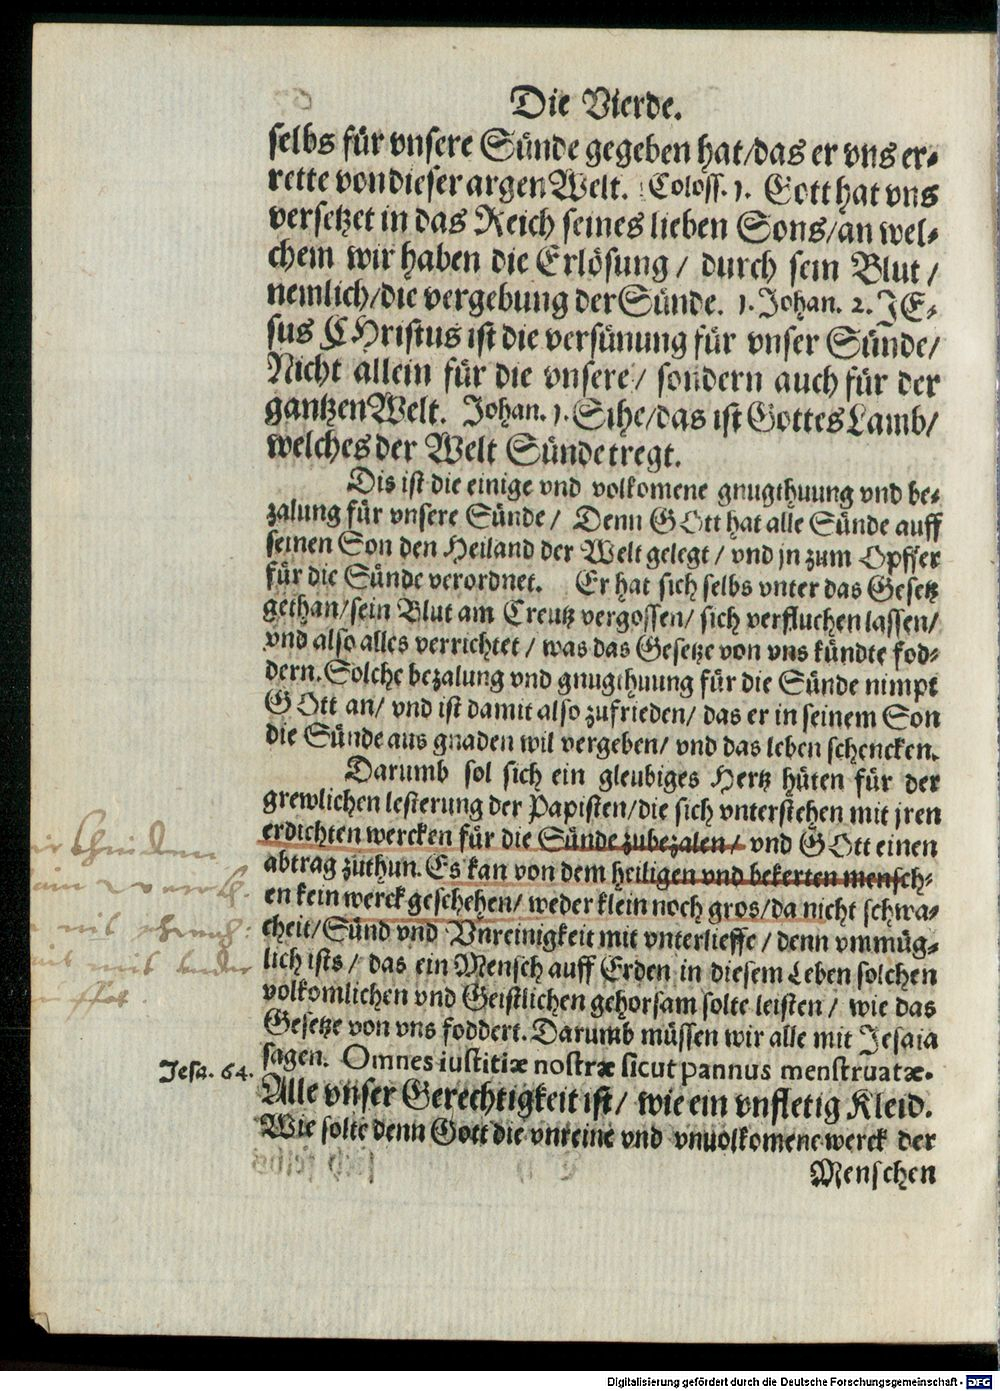 Die Vierde.
selbs für vnsere Sünde gegeben hat/das er vns er-
rette von dieser argen Welt. Coloss. 1. Gott hat vns
versetzet in das Reich seines lieben Sons/an wel-
chem wir haben die Erlösung / durch sein Blut /
nemlich/die vergebung der Sünde. 1. Johan. 2. JE-
sus CHristus ist die versünung für vnser Sünde/
Nicht allein für die vnsere/ sondern auch für der
gantzen Welt. Johan. 1. Sihe/das ist Gottes Lamb/
welches der Welt Sünde tregt.
Dis ist die einige vnd volkomene gnugthuung vnd be-
zalung für vnsere Sünde / Denn GOtt hat alle Sünde auff
seinen Son den Heiland der Welt gelegt / vnd jn zum Opffer
für die Sünde verordnet. Er hat sich selbs vnter das Gesetz
gethan/sein Blut am Creutz vergossen/ sich verfluchen lassen/
vnd also alles verrichtet / was das Gesetze von vns kündte fod-
dern. Solche bezalung vnd gnugthuung für die Sünde nimpt
GOtt an/ vnd ist damit also zufrieden/ das er in seinem Son
die Sünde aus gnaden wil vergeben/ vnd das leben schencken.
Darumb sol sich ein gleubiges Hertz hüten für der
grewlichen lesterung der Papisten/die sich vnterstehen mit jren
erdichten wercken für die Sünde zubezalen/ vnd GOtt einen
abtrag zuthun. Es kan von dem heiligen vnd bekerten mensch-
en kein werck geschehen/ weder klein noch gros/da nicht schwa-
cheit/Sünd vnd Vnreinigkeit mit vnterlieffe / denn vmmüg-
lich ists / das ein Mensch auff Erden in diesem Leben solchen
volkomlichen vnd Geistlichen gehorsam solte leisten / wie das
Gesetze von vns foddert. Darumb müssen wir alle mit Jesaia
sagen. Omnes iustitiæ nostræ sicut pannus menstruatæ.
Jesa. 64.
Alle vnser Gerechtigkeit ist/ wie ein vnfletig Kleid.
Wie solte denn Gott die vnreine vnd vnuolkomene werck der
Menschen
Digitalisierung gefördert durch die Deutsche Forschungsgemeinschaft - DFG